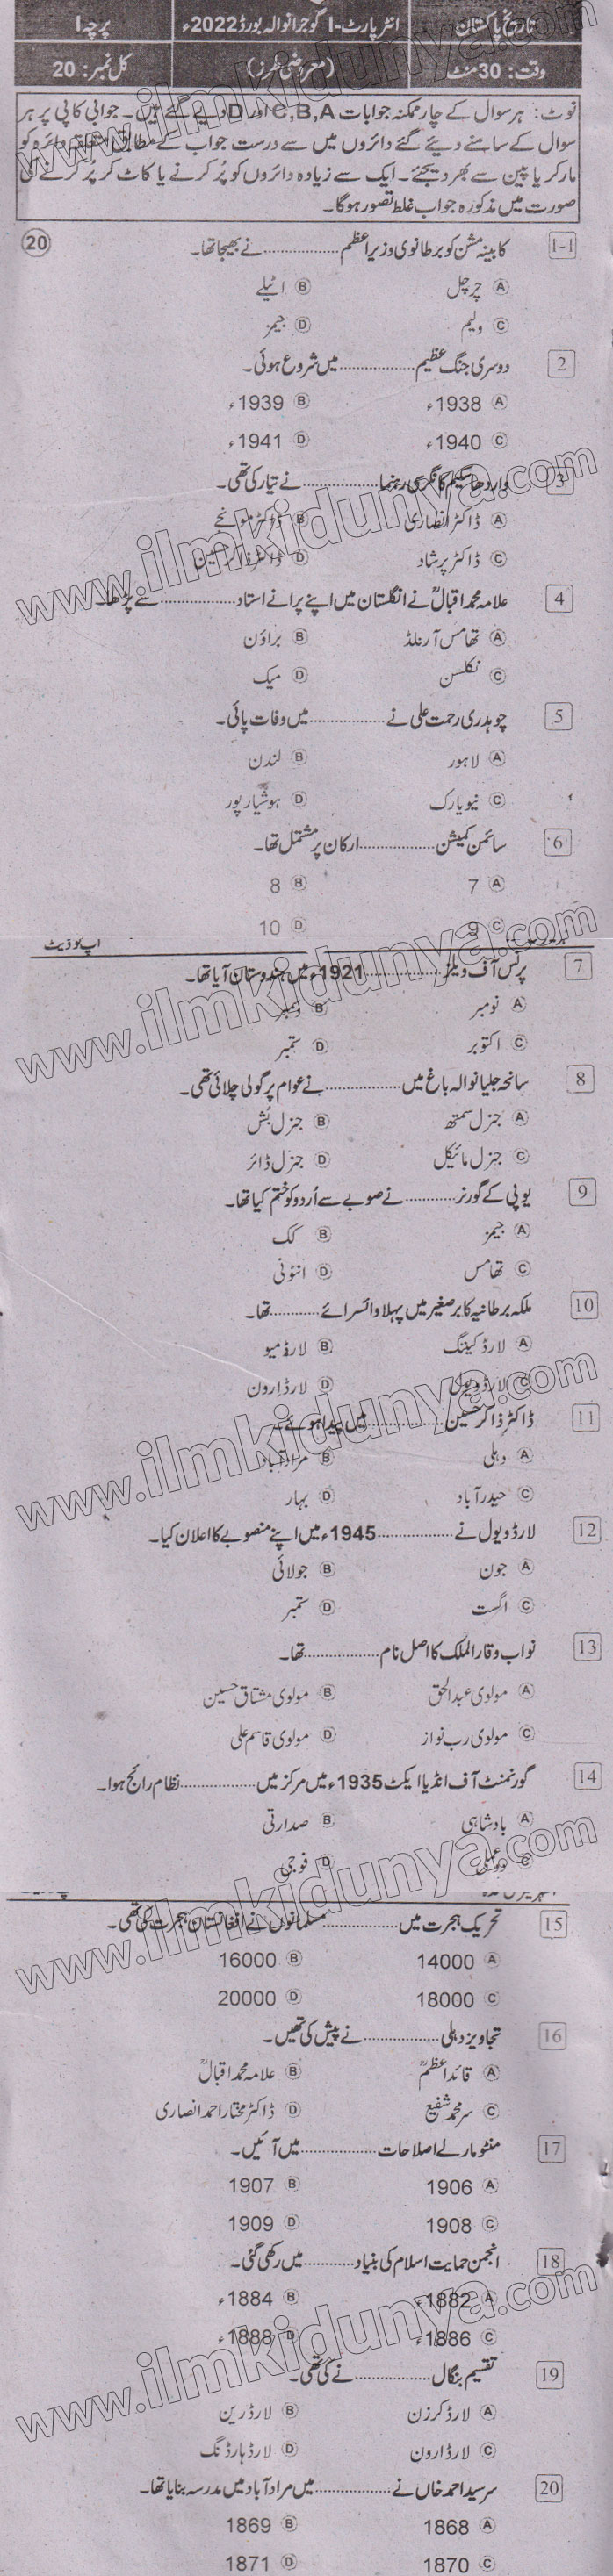 تاریخ پاکستان انٹرپارٹ-I گوجرانوالہ بورڈ2022ء پرچہ I
وقت: 30منٹ (معروضی طرز) کل نمبر: 20
نوٹ: ہر سوال کے چار ممکنہ جوابات C,B,A اور D دیے گئے ہیں۔ جوابی کاپی پر ہر
سوال کے سامنے دیئے گئے دائروں میں سے درست جواب کے مطابق متعلقہ دائرہ کو
مارکر یا پین سے بھر دیجئے۔ ایک سے زیادہ دائروں کو پُر کرنے یا کاٹ کر پُر کرنے کی
صورت میں مذکورہ جواب غلط تصور ہوگا۔
1-1 کابینہ مشن کو برطانوی وزیراعظم ................ نے بھیجا تھا۔ 20
A چرچل B اٹیلے
C ولیم D جیمز
2 دوسری جنگ عظیم ................ میں شروع ہوئی۔
A 1938ء B 1939ء
C 1940ء D 1941ء
3 واردھا سکیم کانگرسی رہنما ................ نے تیار کی تھی۔
A ڈاکٹر انصاری B ڈاکٹر مونجے
C ڈاکٹر پرشاد D ڈاکٹر ذاکر حسین
4 علامہ محمد اقبالؒ نے انگلستان میں اپنے پرانے استاد ................ سے پڑھا۔
A تھامس آرنلڈ B براؤن
C نکلسن D میک
5 چوہدری رحمت علی نے ................ میں وفات پائی۔
A لاہور B لندن
C نیویارک D ہوشیارپور
6 سائمن کمیشن ................ ارکان پر مشتمل تھا۔
A 7 B 8
C 9 D 10
اپ ٹو ڈیٹ
7 پرنس آف ویلز ................ 1921ء میں ہندوستان آیا تھا۔
A نومبر B دسمبر
C اکتوبر D ستمبر
8 سانحہ جلیانوالہ باغ میں ................ نے عوام پر گولی چلائی تھی۔
A جنرل سمتھ B جنرل بُش
C جنرل مائیکل D جنرل ڈائر
9 یوپی کے گورنر ........... نے صوبے سے اُردو کو ختم کیا تھا۔
A جیمز B کک
C تھامس D انٹونی
10 ملکہ برطانیہ کا برصغیر میں پہلا وائسرائے ........... تھا۔
A لارڈ کیننگ B لارڈ میو
C لارڈ ویول D لارڈ ارون
11 ڈاکٹر ذاکر حسین ................ میں پیدا ہوئے۔
A دہلی B مرادآباد
C حیدرآباد D بہار
12 لارڈ ویول نے ................ 1945ء میں اپنے منصوبے کا اعلان کیا۔
A جون B جولائی
C اگست D ستمبر
13 نواب وقارالملک کا اصل نام ................ تھا۔
A مولوی عبدالحق B مولوی مشتاق حسین
C مولوی رب نواز D مولوی قاسم علی
14 گورنمنٹ آف انڈیا ایکٹ 1935ء میں مرکز میں ................ نظام رائج ہوا۔
A بادشاہی B صدارتی
C دوعملی D فوجی
15 تحریک ہجرت میں ................ مسلمانوں نے افغانستان ہجرت کی تھی۔
A 14000 B 16000
C 18000 D 20000
16 تجاویز دہلی ................ نے پیش کی تھیں۔
A قائداعظمؒ B علامہ محمد اقبالؒ
C سر محمد شفیع D ڈاکٹر مختار احمد انصاری
17 منٹو مارلے اصلاحات ................ میں آئیں۔
A 1906 B 1907
C 1908 D 1909
18 انجمن حمایت اسلام کی بنیاد ........... میں رکھی گئی۔
A 1882ء B 1884ء
C 1886ء D 1888ء
19 تقسیم بنگال ................ نے کی تھی۔
A لارڈ کرزن B لارڈ رپن
C لارڈ ارون D لارڈ ہارڈنگ
20 سرسید احمد خاں نے ................ میں مرادآباد میں مدرسہ بنایا تھا۔
A 1868 B 1869
C 1870 D 1871
www.ilmkidunya.com
www.ilmkidunya.com
www.ilmkidunya.com
www.ilmkidunya.com
www.ilmkidunya.com
www.ilmkidunya.com